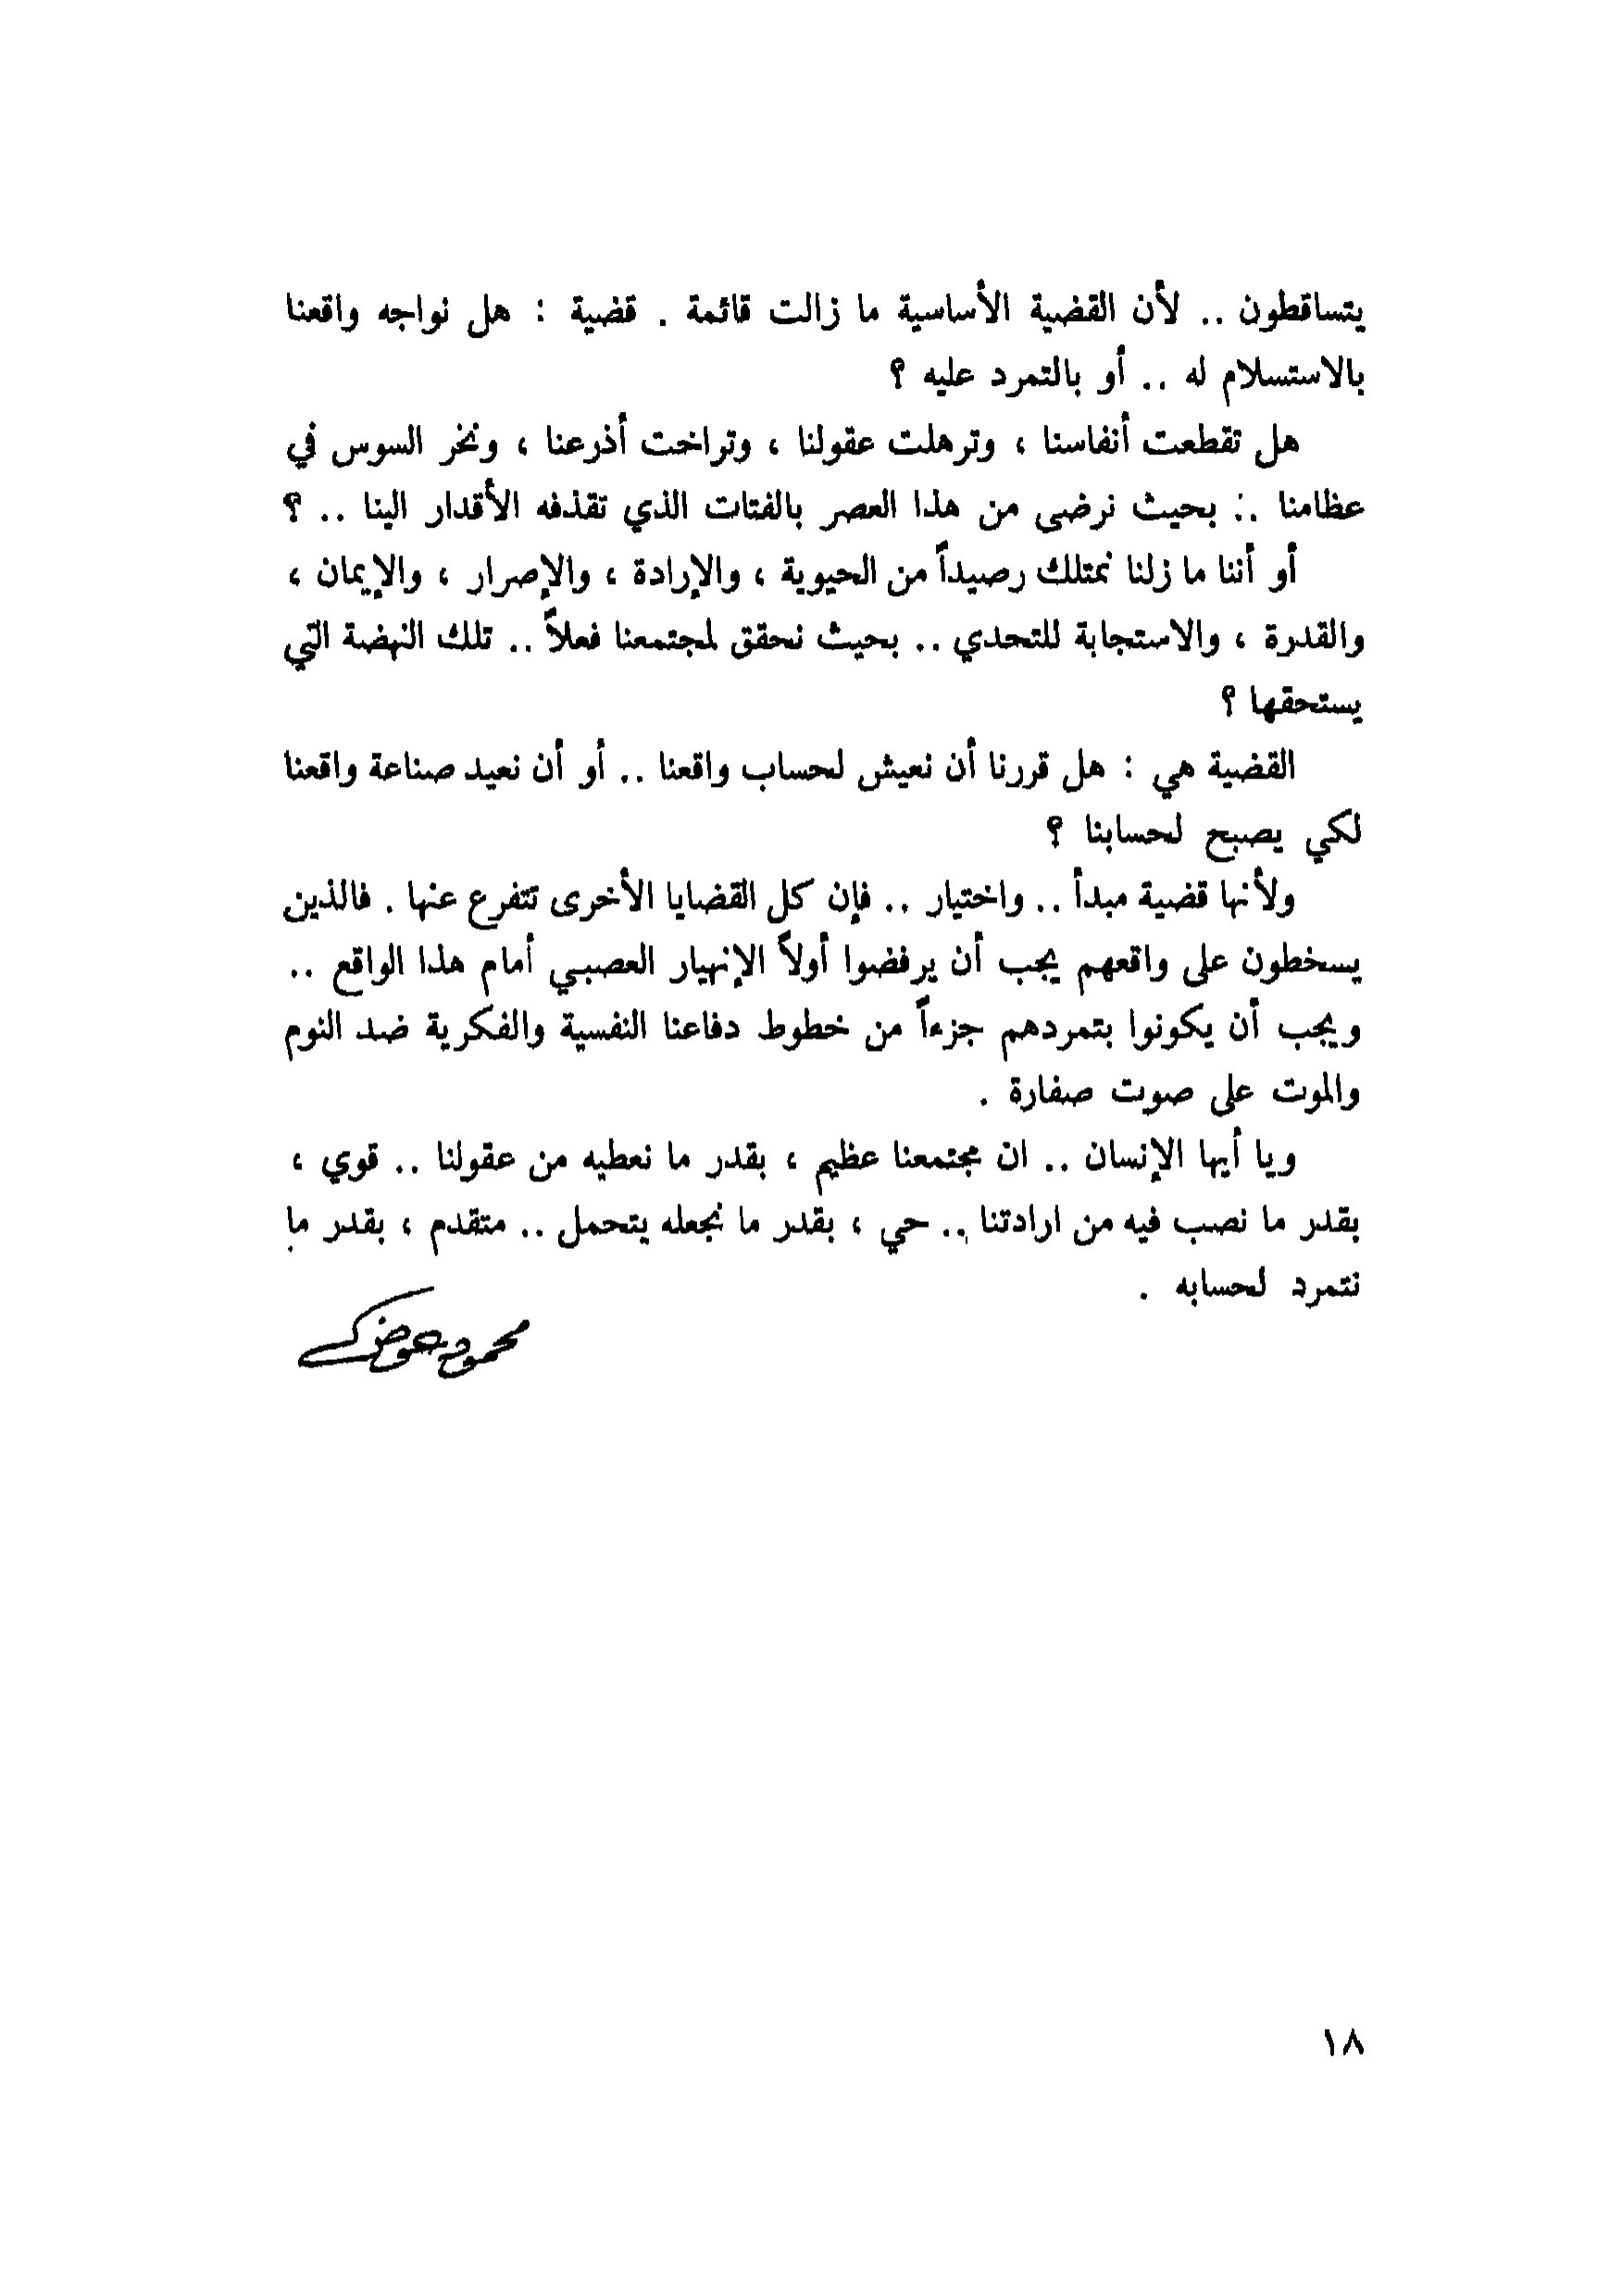 يتساقطون .. لأن القضية الأساسية ما زالت قائمة . قضية : هل نواجه واقعنا
بالاستسلام له .. أو بالتمرد عليه ؟
هل تقطعت أنفاسنا ، وترهلت عقولنا ، وتراخت أذرعنا ، ونخر السوس في
عظامنا .. بحيث نرضى من هذا العصر بالفتات الذي تقذفه الأقدار الينا .. ؟
أو أننا ما زلنا نمتلك رصيداً من الحيوية ، والإرادة ، والإصرار ، والإيمان ،
والقدرة ، والاستجابة للتحدي .. بحيث نحقق لمجتمعنا فعلاً .. تلك النهضة التي
يستحقها ؟
القضية هي : هل قررنا أن نعيش لحساب واقعنا .. أو أن نعيد صناعة واقعنا
لكي يصبح لحسابنا ؟
ولأنها قضية مبدأ .. واختيار .. فإن كل القضايا الأخرى تتفرع عنها . فالذين
يسخطون على واقعهم يجب أن يرفضوا أولاً الإنهيار العصبي أمام هذا الواقع ..
ويجب أن يكونوا بتمردهم جزءاً من خطوط دفاعنا النفسية والفكرية ضد النوم
والموت على صوت صفارة .
ويا أيها الإنسان .. ان مجتمعنا عظيم ، بقدر ما نعطيه من عقولنا .. قوي ،
بقدر ما نصب فيه من ارادتنا .. حي ، بقدر ما نجعله يتحمل .. متقدم ، بقدر ما
نتمرد لحسابه .
محمود عوض
١٨